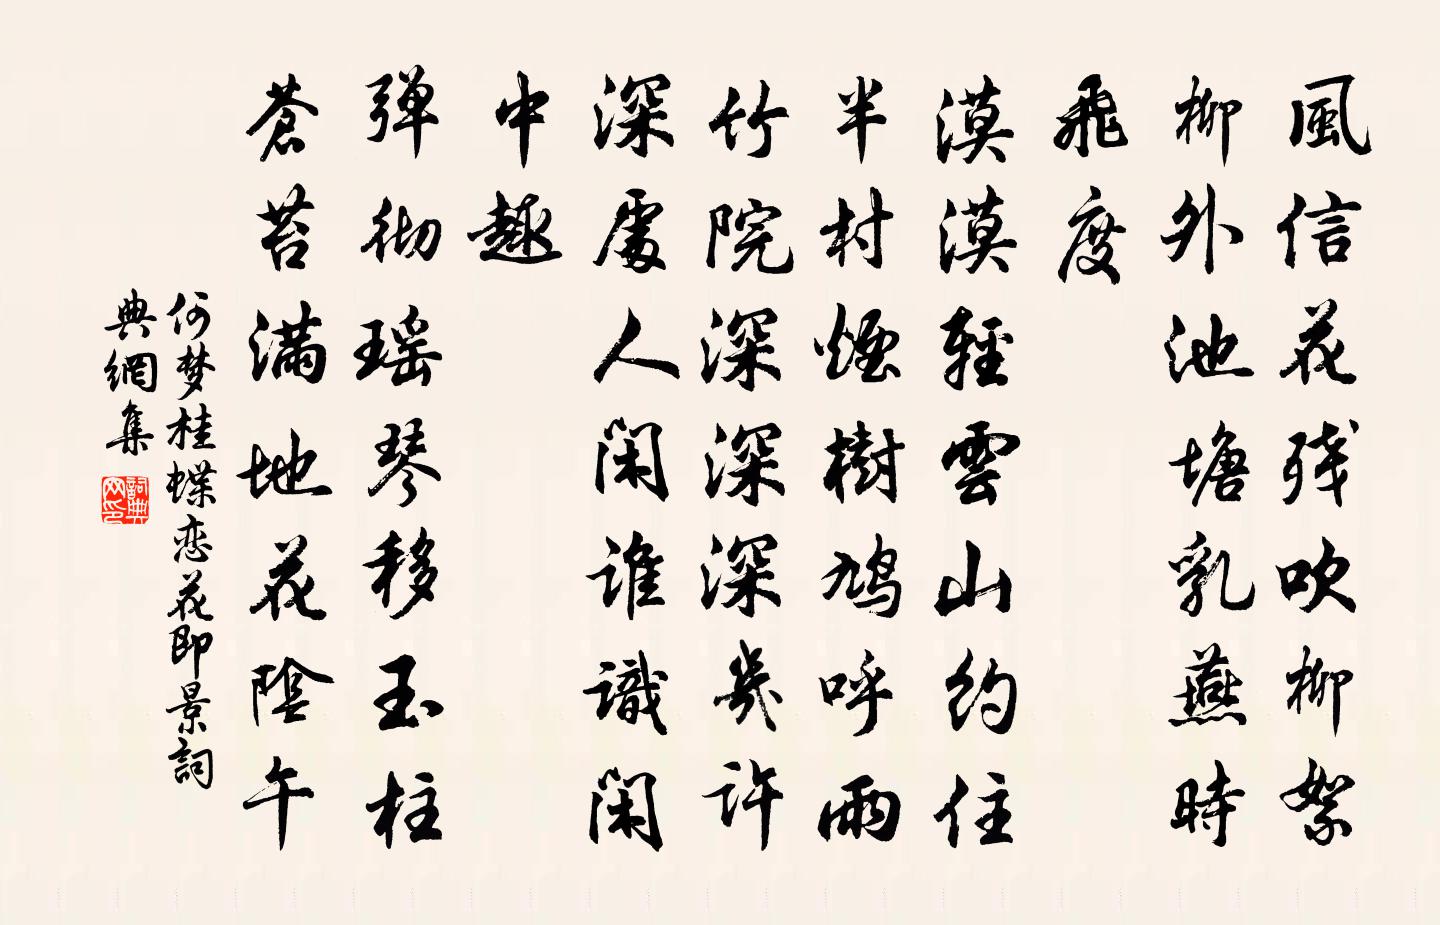 風信花残吹柳絮
柳外池塘乳燕時
飛度
漠漠輕雲山約住
半村煙樹鳩呼雨
竹院深深深幾許
深處人閑誰識閑
中趣
弹彻瑶琴移玉柱
蒼苔滿地花陰午
何梦桂蝶恋花即景詞
典網集
詞典网印